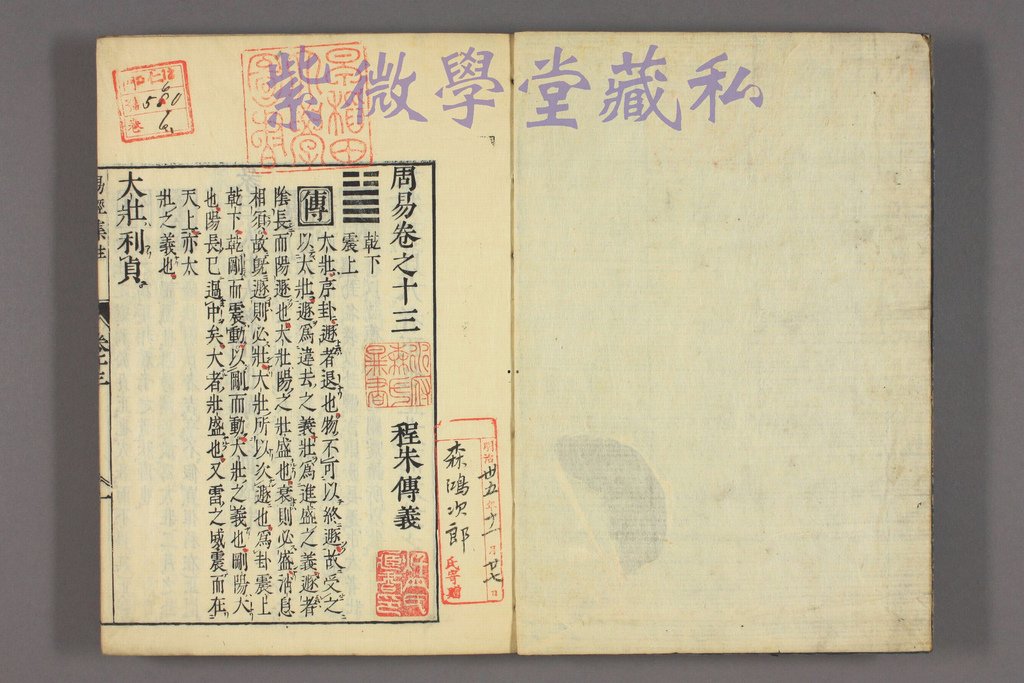 紫微學堂藏私
周易卷之十三 程朱傳義
乾下
震上
傳
大壯序卦遯者退也物不可以終遯故受之
以太壯遯爲違去之義壯爲進盛之義遯者
陰長而陽遯也大壯陽之壯盛也衰則必盛消息
相須故旣遯則必壯大壯所以次遯也爲卦震上
乾下乾剛而震動以剛而動大壯之義也剛陽大
也陽長已過中矣大者壯盛也又雷之威震而在
天上亦太
壯之義也
大壯利貞
明治卅五年十一月廿七日
森鴻次郎
氏寄贈